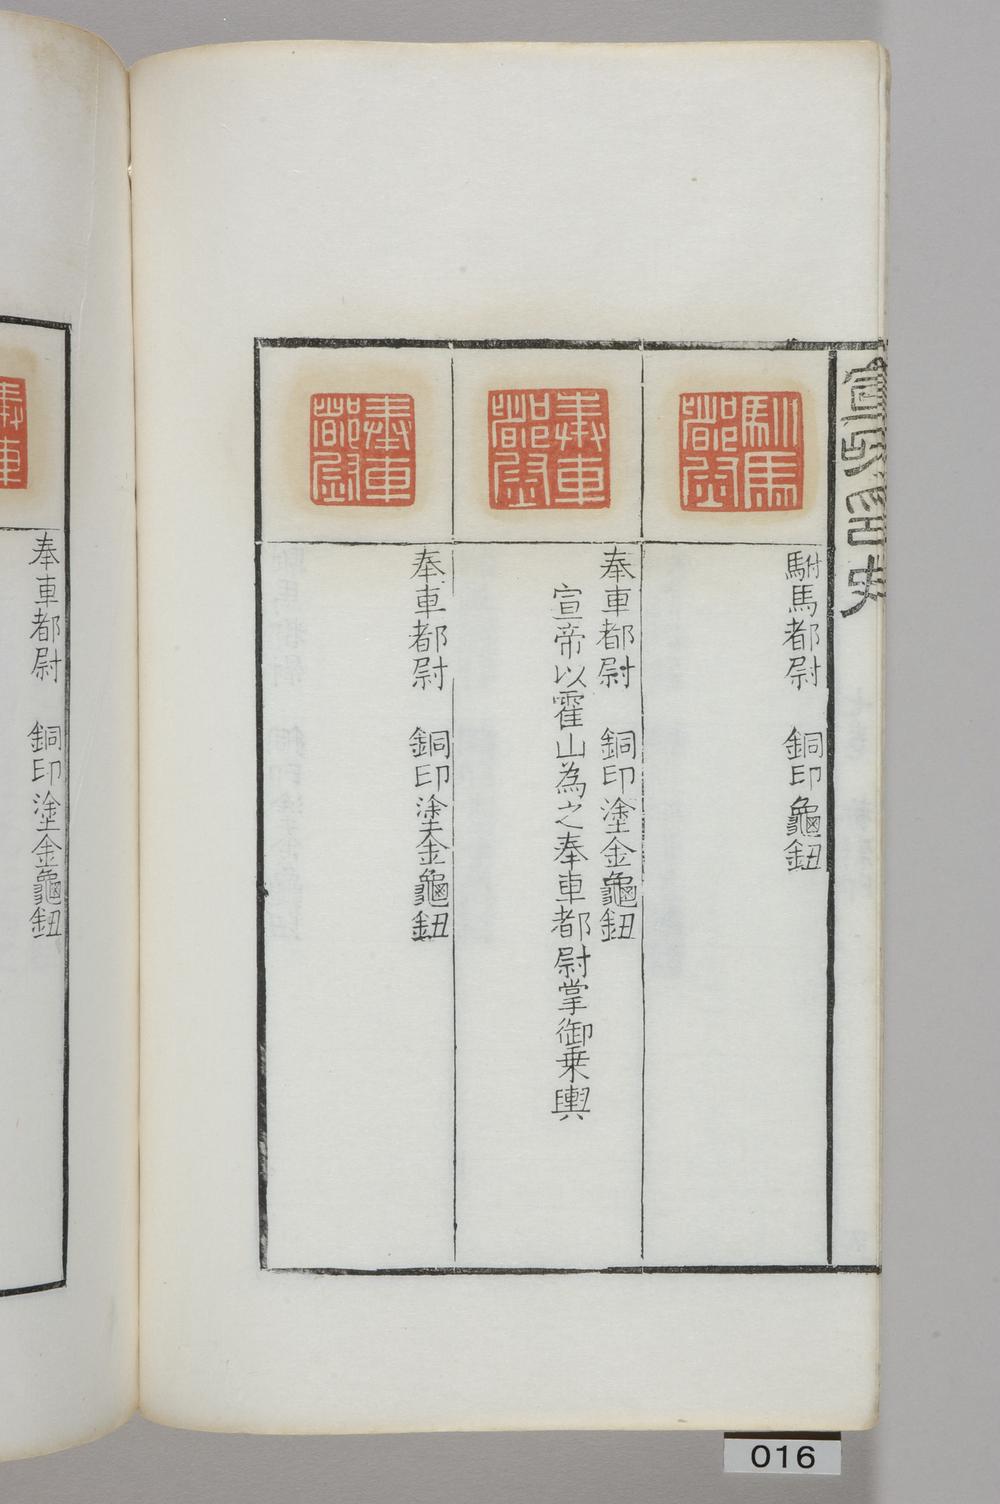 宣和印史
駙馬都尉
駙馬都尉 銅印龜鈕
奉車都尉
奉車都尉 銅印塗金龜鈕
宣帝以霍山為之奉車都尉掌御乗輿
奉車都尉
奉車都尉 銅印塗金龜鈕
奉車
奉車都尉 銅印塗金龜鈕
016